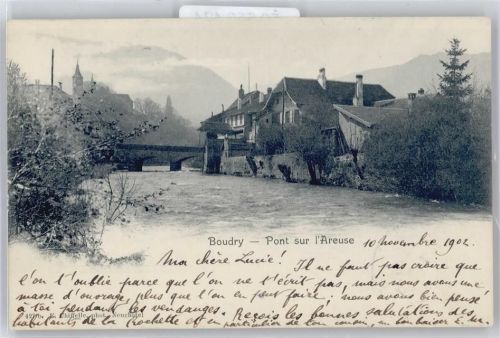 Boudry — Pont sur l'Areuse
10 novembre 1902.
Ma chère Lucie! Il ne faut pas croire que
l'on t'oublie parce que l'on ne t'écrit pas, mais nous avons une
masse d'ouvrage plus que l'on en peut faire; nous avons bien pensé
à toi pendant les vendanges. Reçois les bonnes salutations des
habitants de la Rochette et en particulier de ton cousin, un bon baiser E.
phot. Neuchâtel